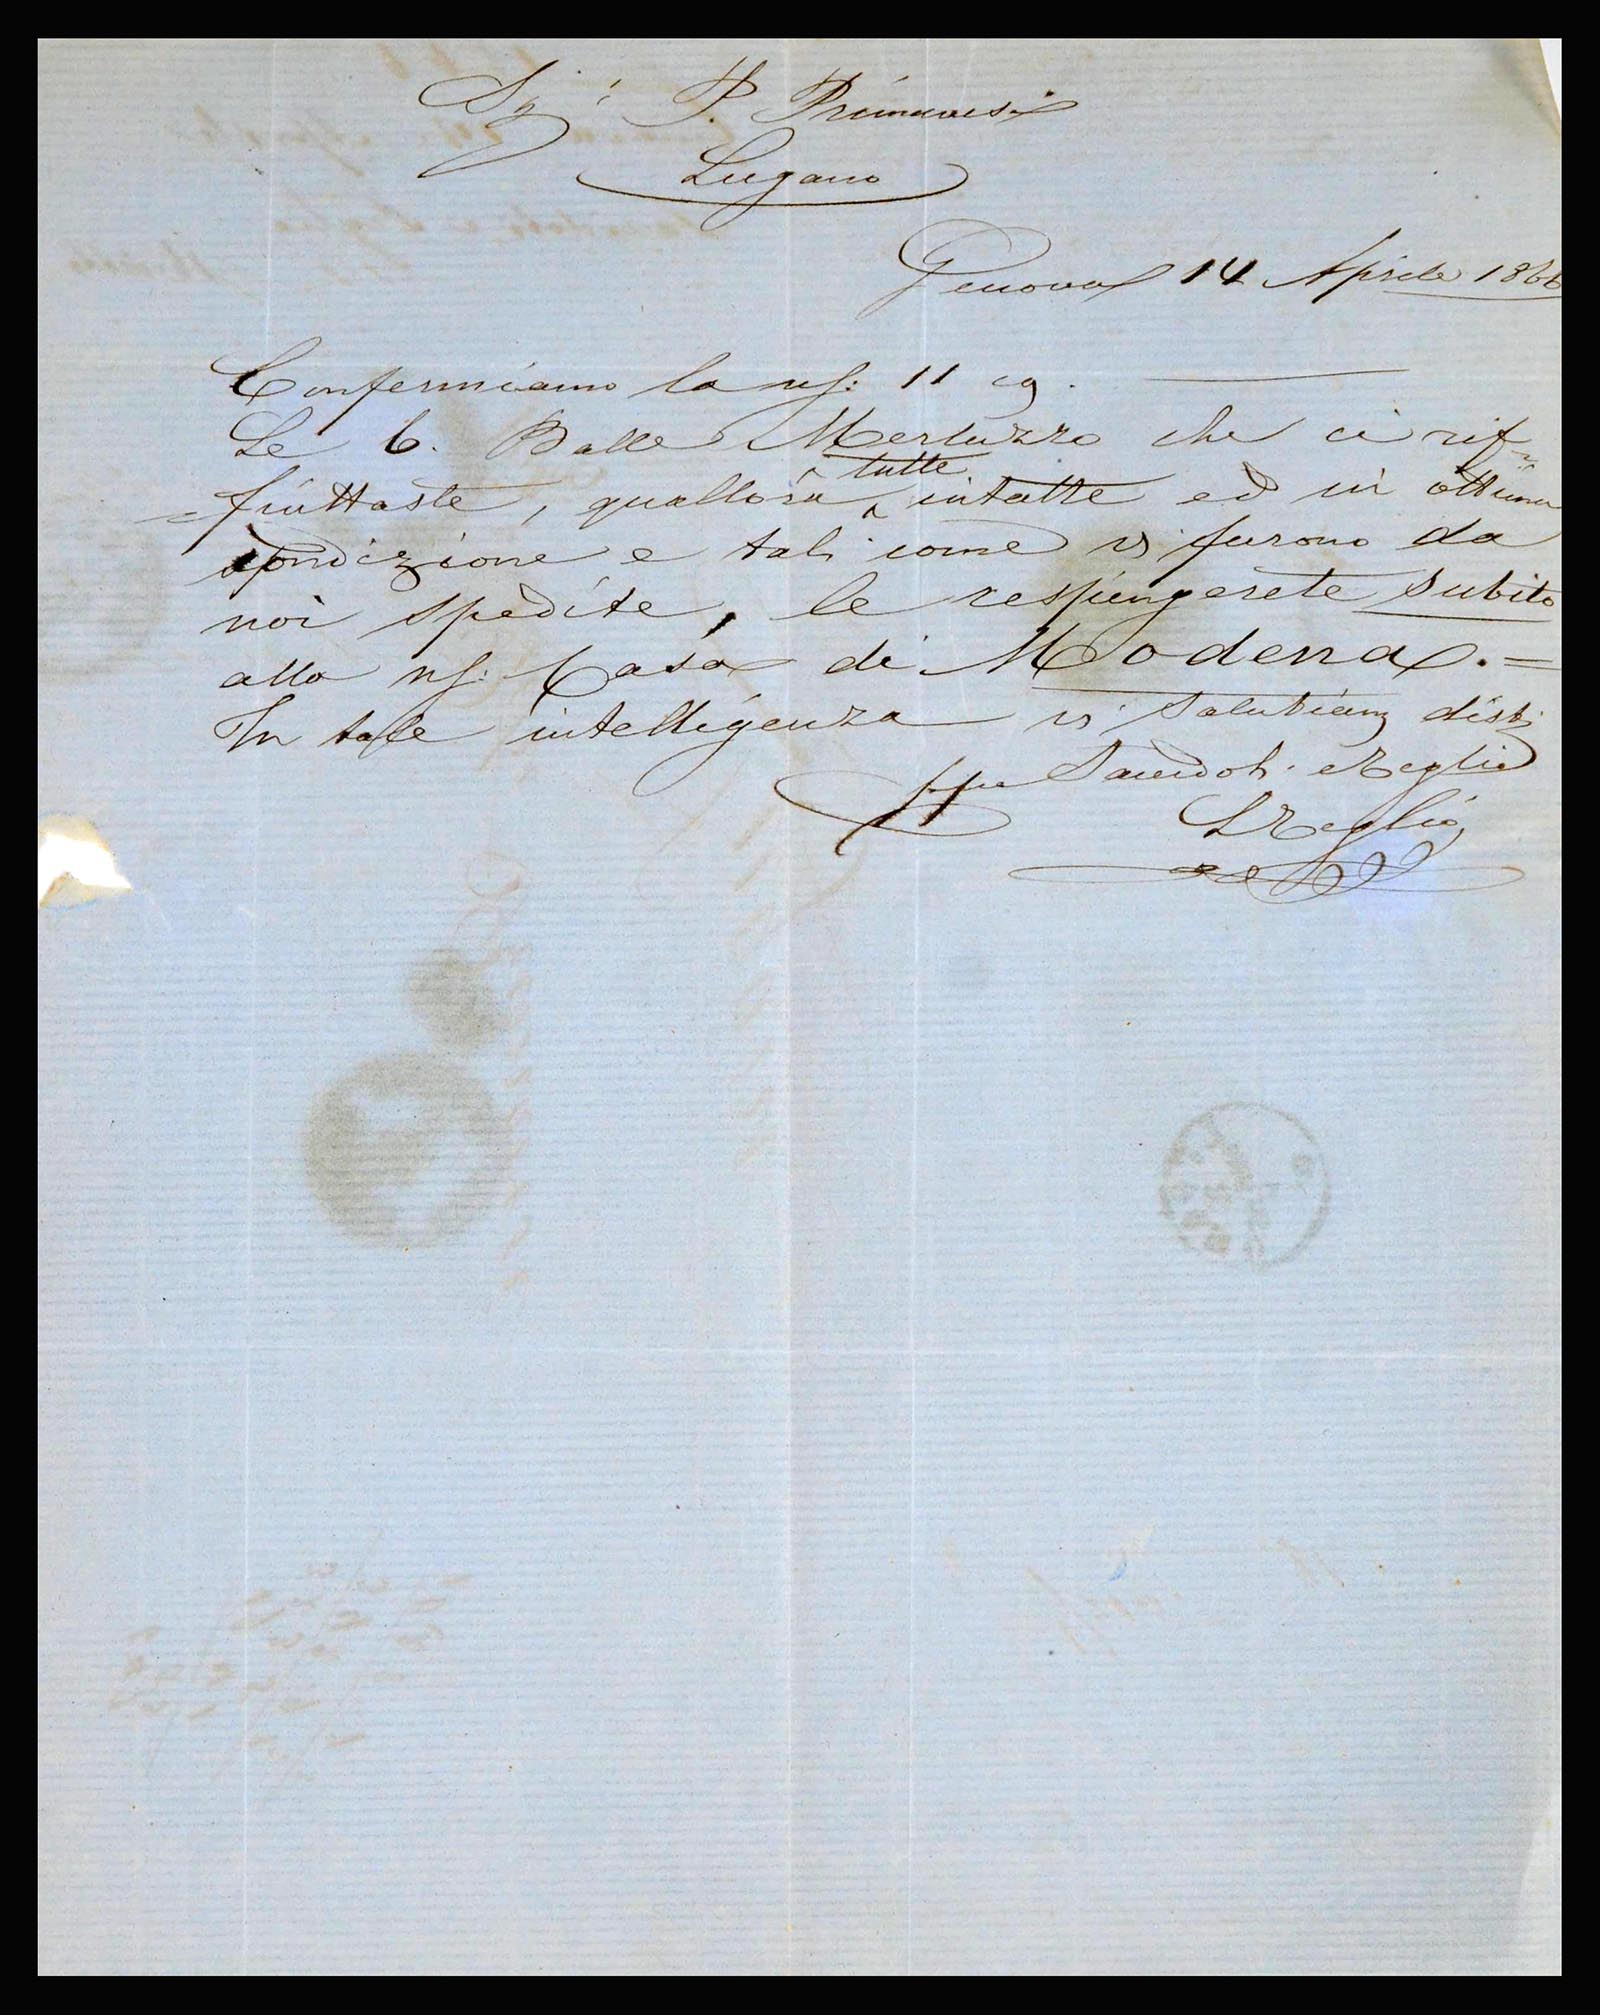 Sig.i P. Primavesi
Lugano
Genova 14 Aprile 1866
Confermiamo la ns/: 11 c.
Le 6. Balle Merluzzo che ci rif=
=fiuttaste, quallora tutte intatte ed in ottima
condizione e tali come vi furono da
noi spedite, le respingerete subito
alla ns/: Casa di Modena. =
In tale intelligenza vi salutiam dist.
ppa Sacerdoti e Reglio
Reglio